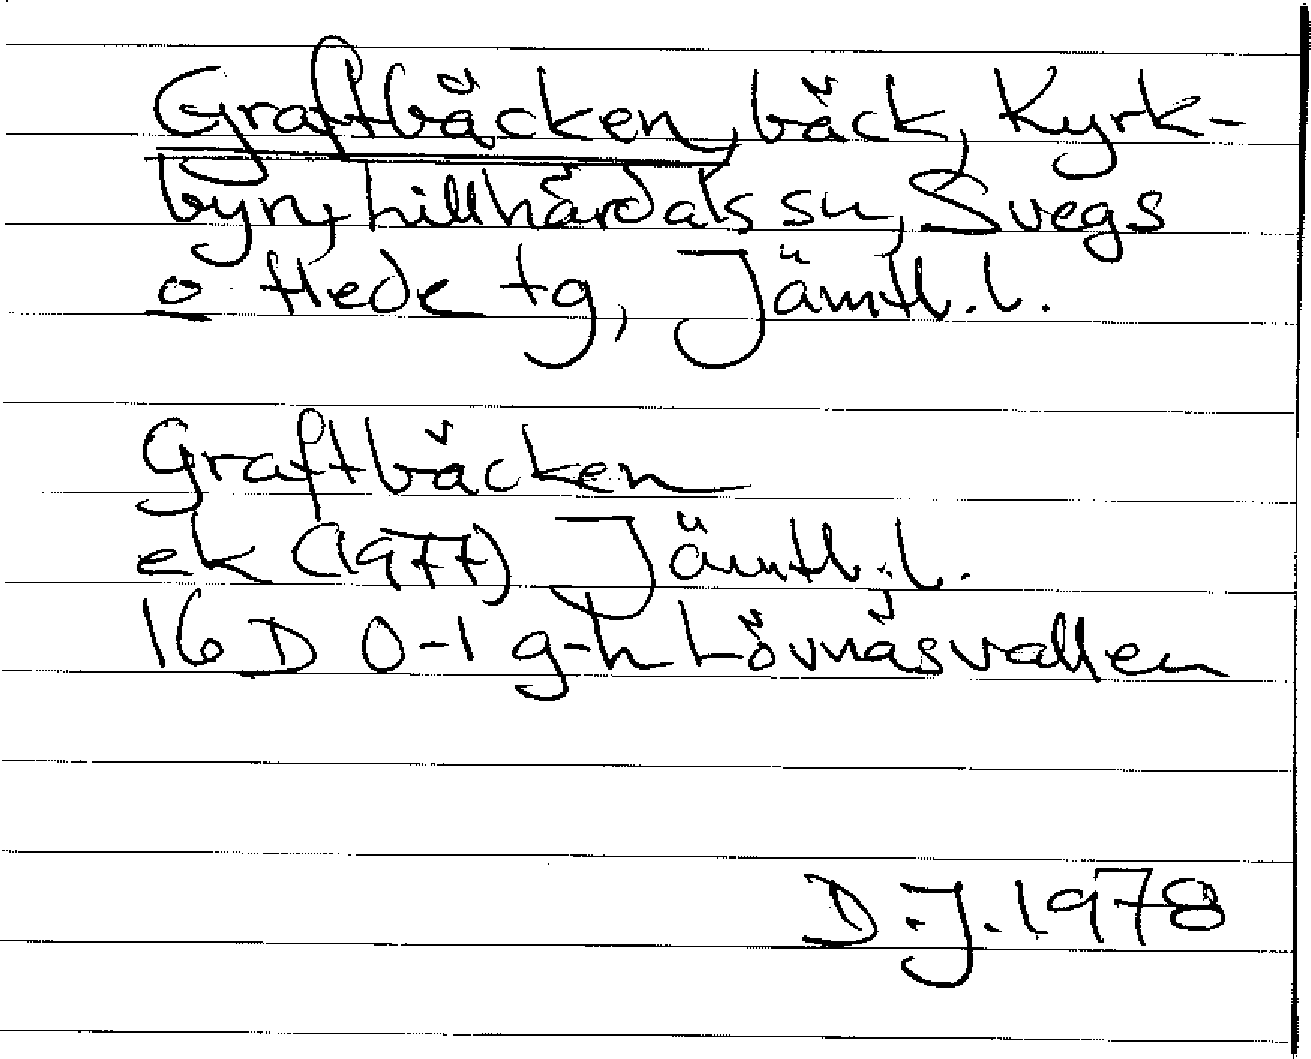 Graftbäcken, bäck, Kyrk-
byn, Lillhärdals sn, Svegs
o Hede tg, Jämtl. l.
Graftbäcken
ek (1977) Jämtl. l.
16 D 0-1 g-h Lövnäsvallen
D.J. 1978